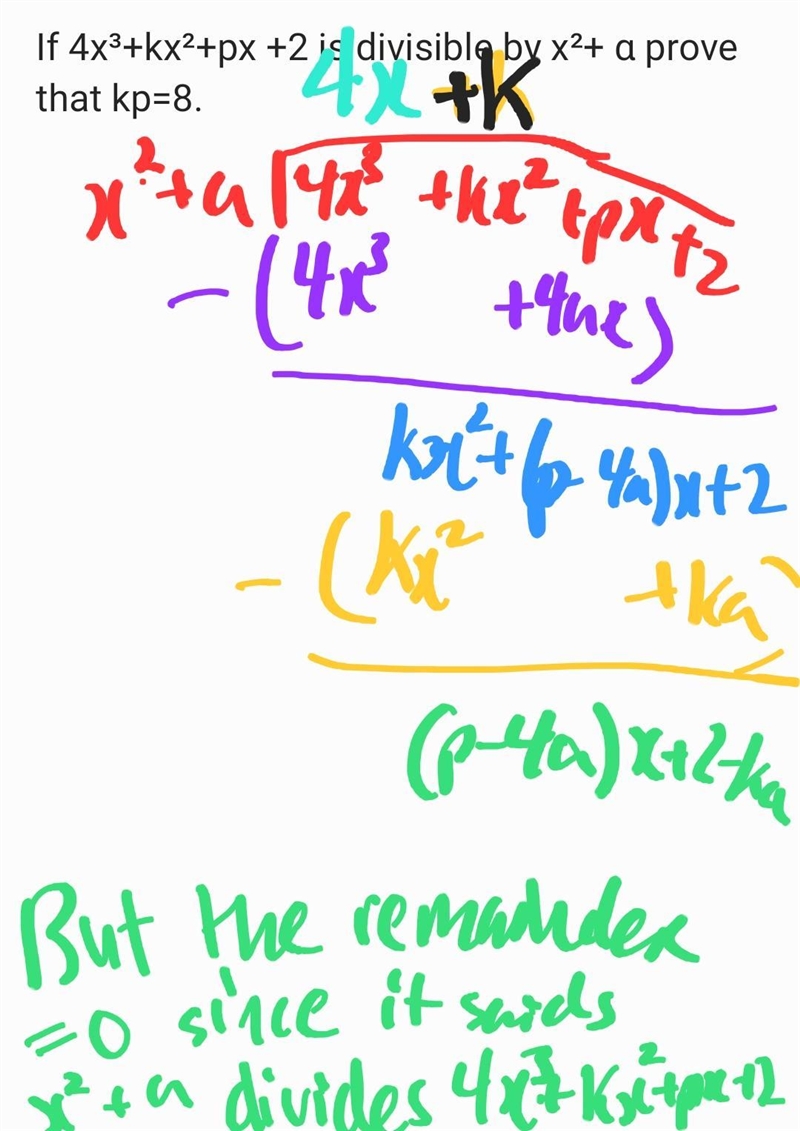 If 4x³+kx²+px +2 is divisible by x²+ α prove
that kp=8.
4x +k
x²+a 4x³ +kx²+px+2
-(4x³ +4ax)
kx²+(p-4a)x+2
-(kx² +ka)
(p-4a)x+2-ka
But the remainder
=0 since it saids
x²+a divides 4x³+kx²+px+2